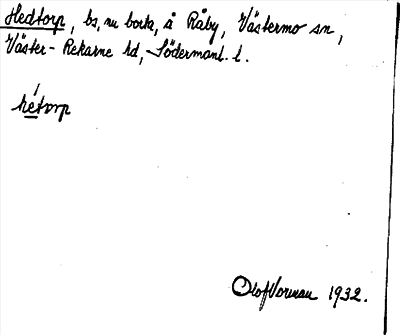 Hedtorp, bs, nu borta, å Råby, Västermo sn,
Väster-Rekarne hd, Södermanl. l.
hétorp
Olof Vorman 1932.